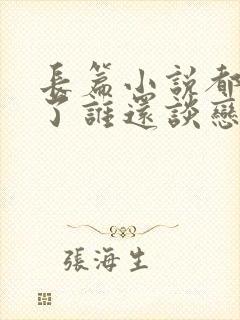 長篇小說都
了誰還談戀
張海生